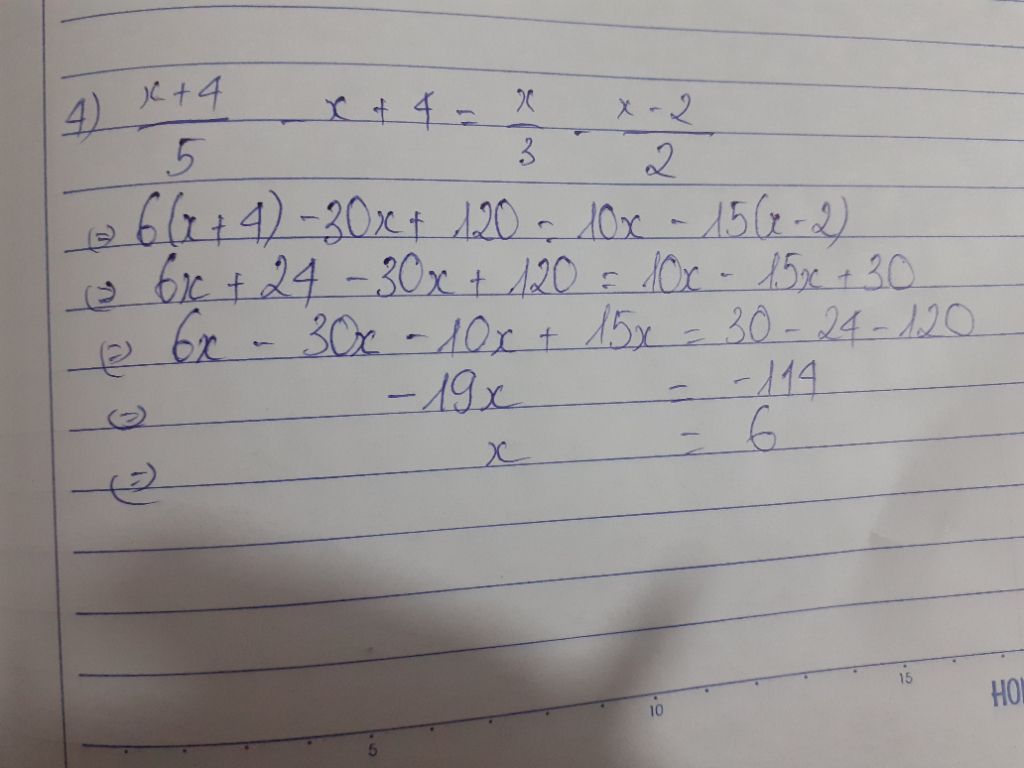 4) x+4/5 - x + 4 = x/3 - x-2/2
⇔ 6(x+4) - 30x + 120 = 10x - 15(x-2)
⇔ 6x + 24 - 30x + 120 = 10x - 15x + 30
⇔ 6x - 30x - 10x + 15x = 30 - 24 - 120
⇔ -19x = -114
⇔ x = 6
5 10 15